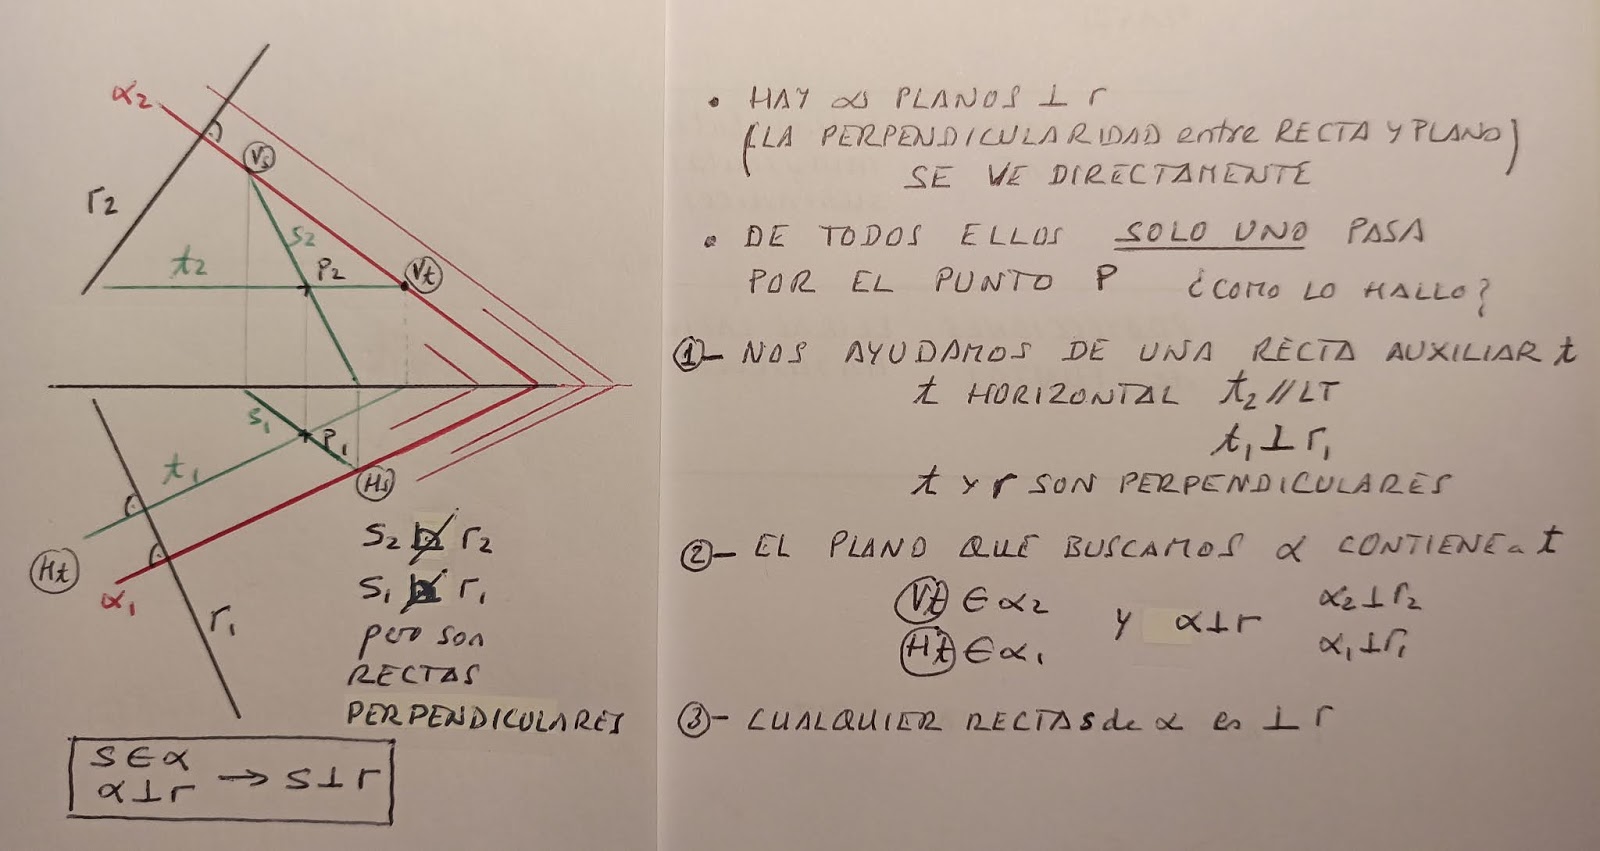 α2
Vs
r2
s2
t2
P2
Vt
s1
P1
t1
Hs
Ht
α1
r1
S2 r2
S1 r1
pero son
RECTAS
PERPENDICULARES
S ∈ α
α ⊥ r → S ⊥ r
• HAY ∞ PLANOS ⊥ r
(LA PERPENDICULARIDAD entre RECTA Y PLANO)
SE VE DIRECTAMENTE
• DE TODOS ELLOS SOLO UNO PASA
POR EL PUNTO P ¿COMO LO HALLO?
①- NOS AYUDAMOS DE UNA RECTA AUXILIAR t
t HORIZONTAL t2 // LT
t1 ⊥ r1
t y r SON PERPENDICULARES
②- EL PLANO QUE BUSCAMOS α CONTIENE a t
Vt ∈ α2 y α ⊥ r α2 ⊥ r2
Ht ∈ α1 α1 ⊥ r1
③- CUALQUIER RECTA S de α es ⊥ r